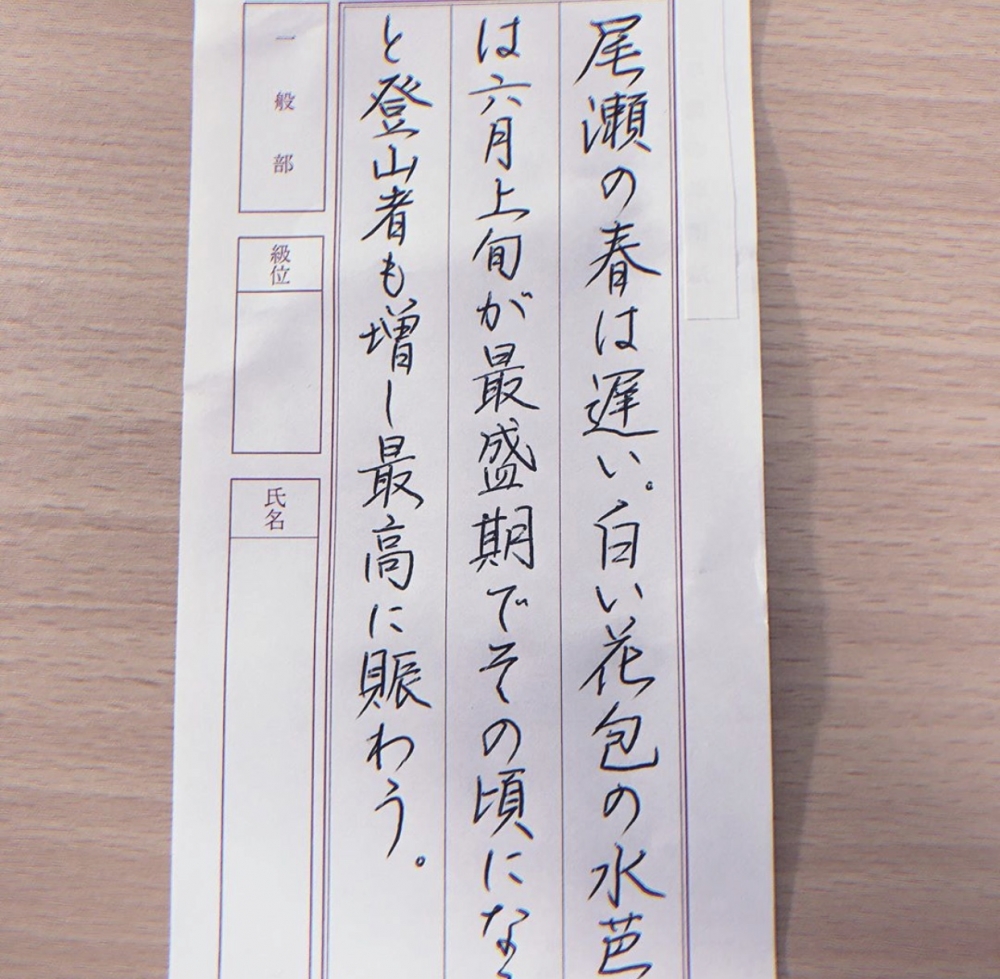 尾瀬の春は遅い。白い花包の水芭
は六月上旬が最盛期でその頃にな
と登山者も増し最高に賑わう。
一般部
級位
氏名